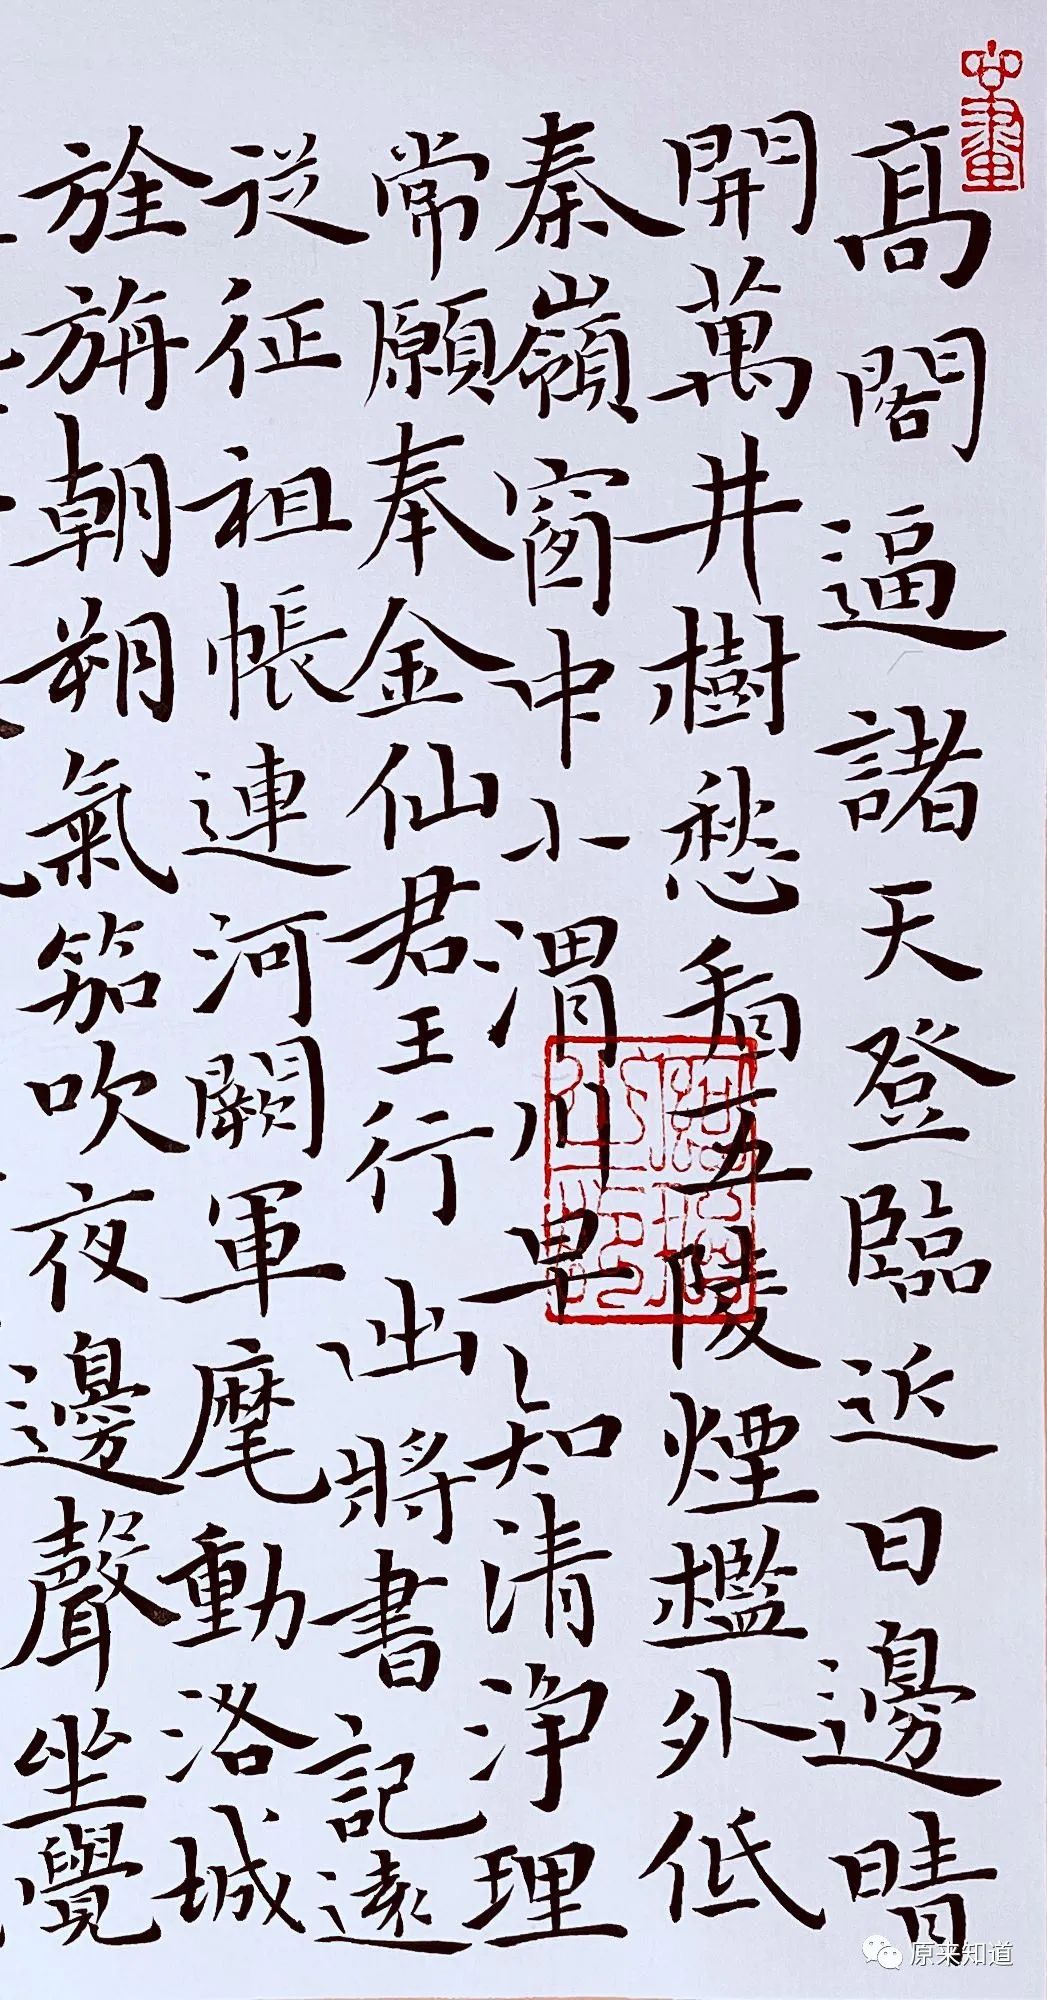 高閣逼諸天登臨近日邊晴
開萬井樹愁看五陵煙檻外低
秦嶺窗中小渭川早知清淨理
常願奉金仙君王行出將書記遠
從征祖帳連河闕軍麾動洛城
旌旃朝朔氣笳吹夜邊聲坐覺
原来知道